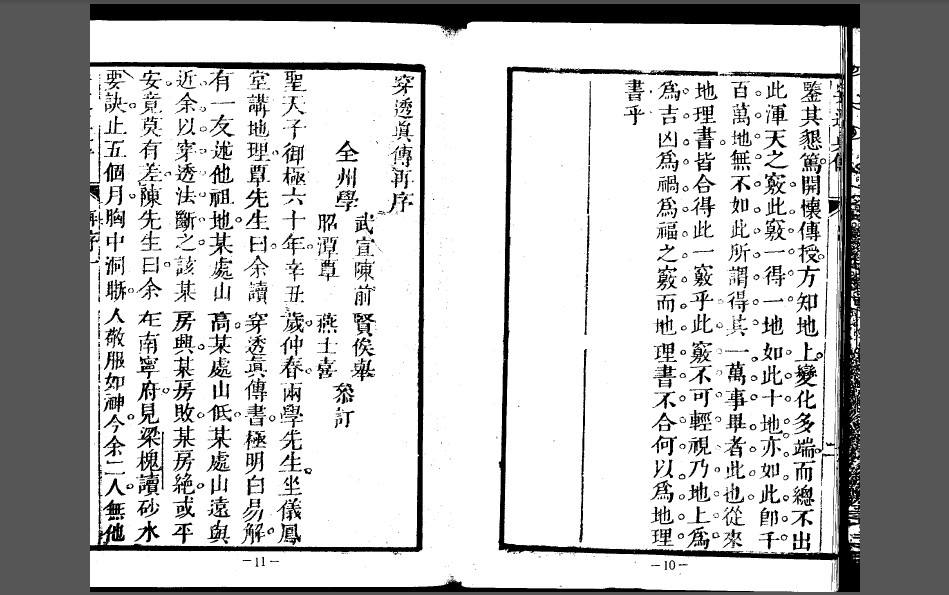 鑒其懇篤開懷傳授方知地上變化多端而總不出
此渾天之竅此竅一得一地如此十地亦如此卽千
百萬地無不如此所謂得其一萬事畢者此也從來
地理書皆合得此一竅乎此竅不可輕視乃地上爲
爲吉凶爲禍爲福之竅而地理書不合何以爲地理
書乎
二
—10—
穿透眞傳再序
武宣陳前賢俟舉
全州學
昭潭覃燕士喜
叅訂
聖天子御極六十年辛丑歲仲春兩學先生坐儀鳳
堂講地理覃先生曰余讀穿透眞傳書極明白易解
有一友述他祖地某處山高某處山低某處山遠與
近余以穿透法斷之該某房興某房敗某房絶或平
安竟莫有差陳先生曰余在南寧府見梁槐讀砂水
要訣止五個月胸中洞聮人敬服如神今余二人無他
—11—